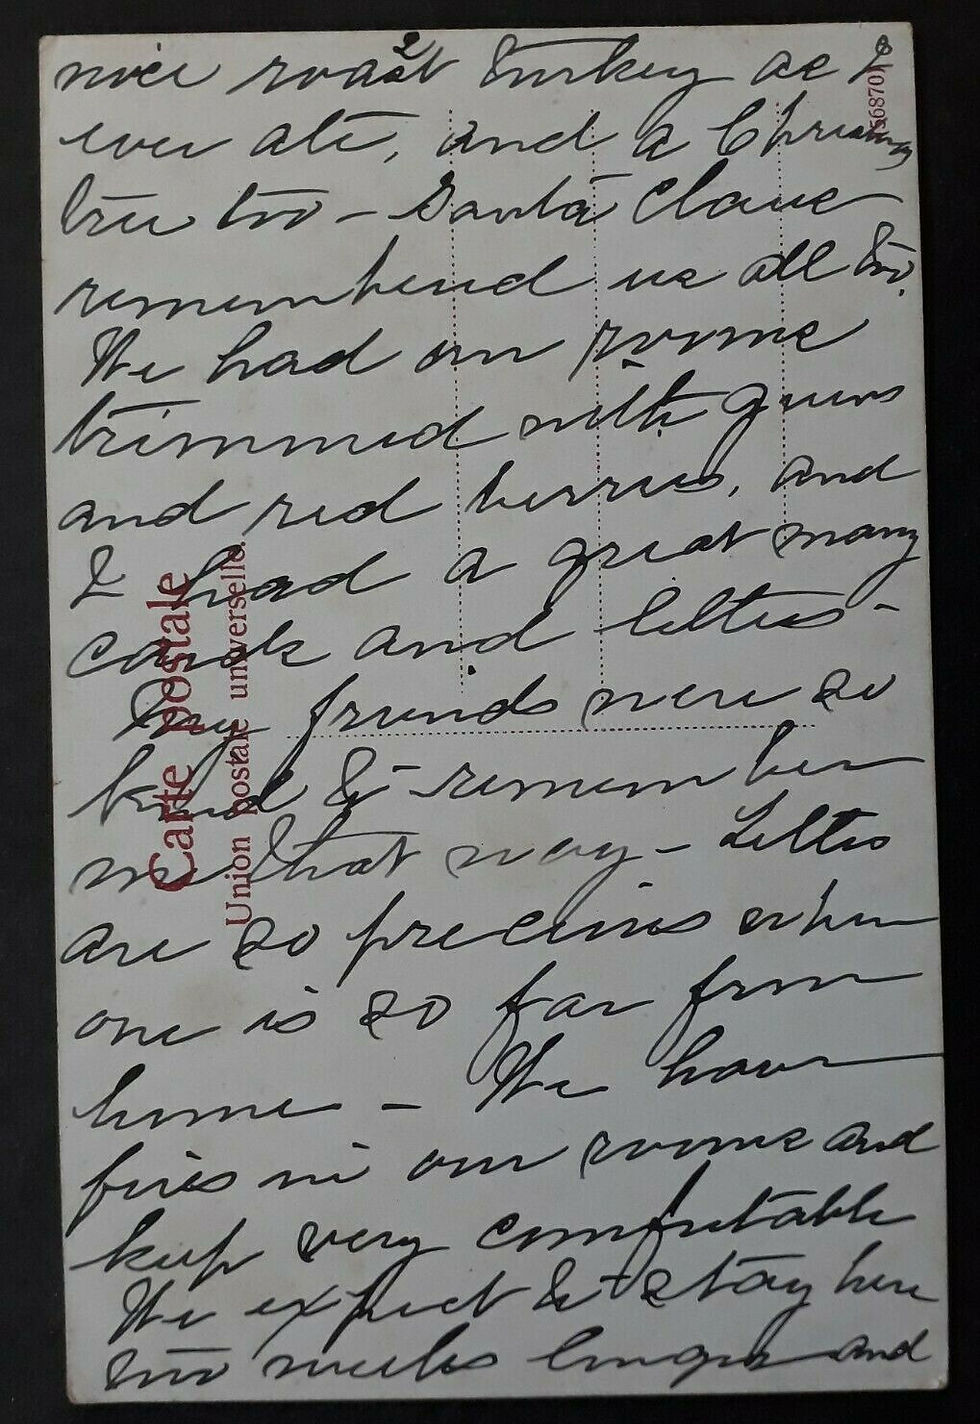 2
nice roast turkey as I
ever ate, and a Christmas
tree too – Santa Claus
remembered us all too.
We had our rooms
trimmed with greens
and red berries, and
I had a great many
cards and letters –
My friends were so
kind to remember
me that way – Letters
are so precious when
one is so far from
home – We have
fires in our rooms and
keep very comfortable
We expect to stay here
two weeks longer and
Carte postale
Union postale universelle.
568701